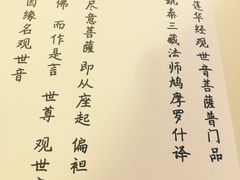 莲华经观世音菩萨普门品
筑泰三藏法师鸠摩罗什译
尽意菩薩 即从座起 偏袒
佛 而作是言 世尊 观世
因缘名观世音